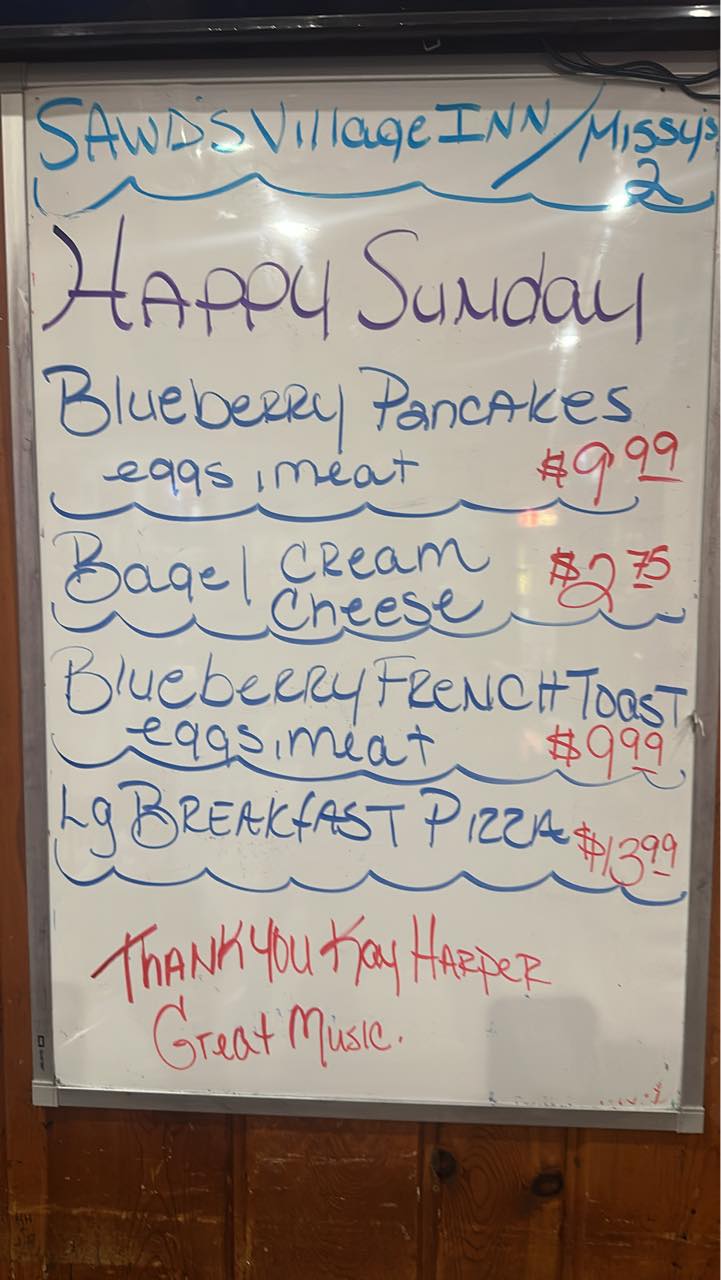 SAWDS Village INN / Missy's
2
HAPPY Sunday
Blueberry Pancakes
eggs, meat $9.99
Bagel Cream $2.75
Cheese
Blueberry French Toast
eggs, meat $9.99
Lg BREAKfAST PIZZA $13.99
THANK YOU Kay HARPER
Great Music.